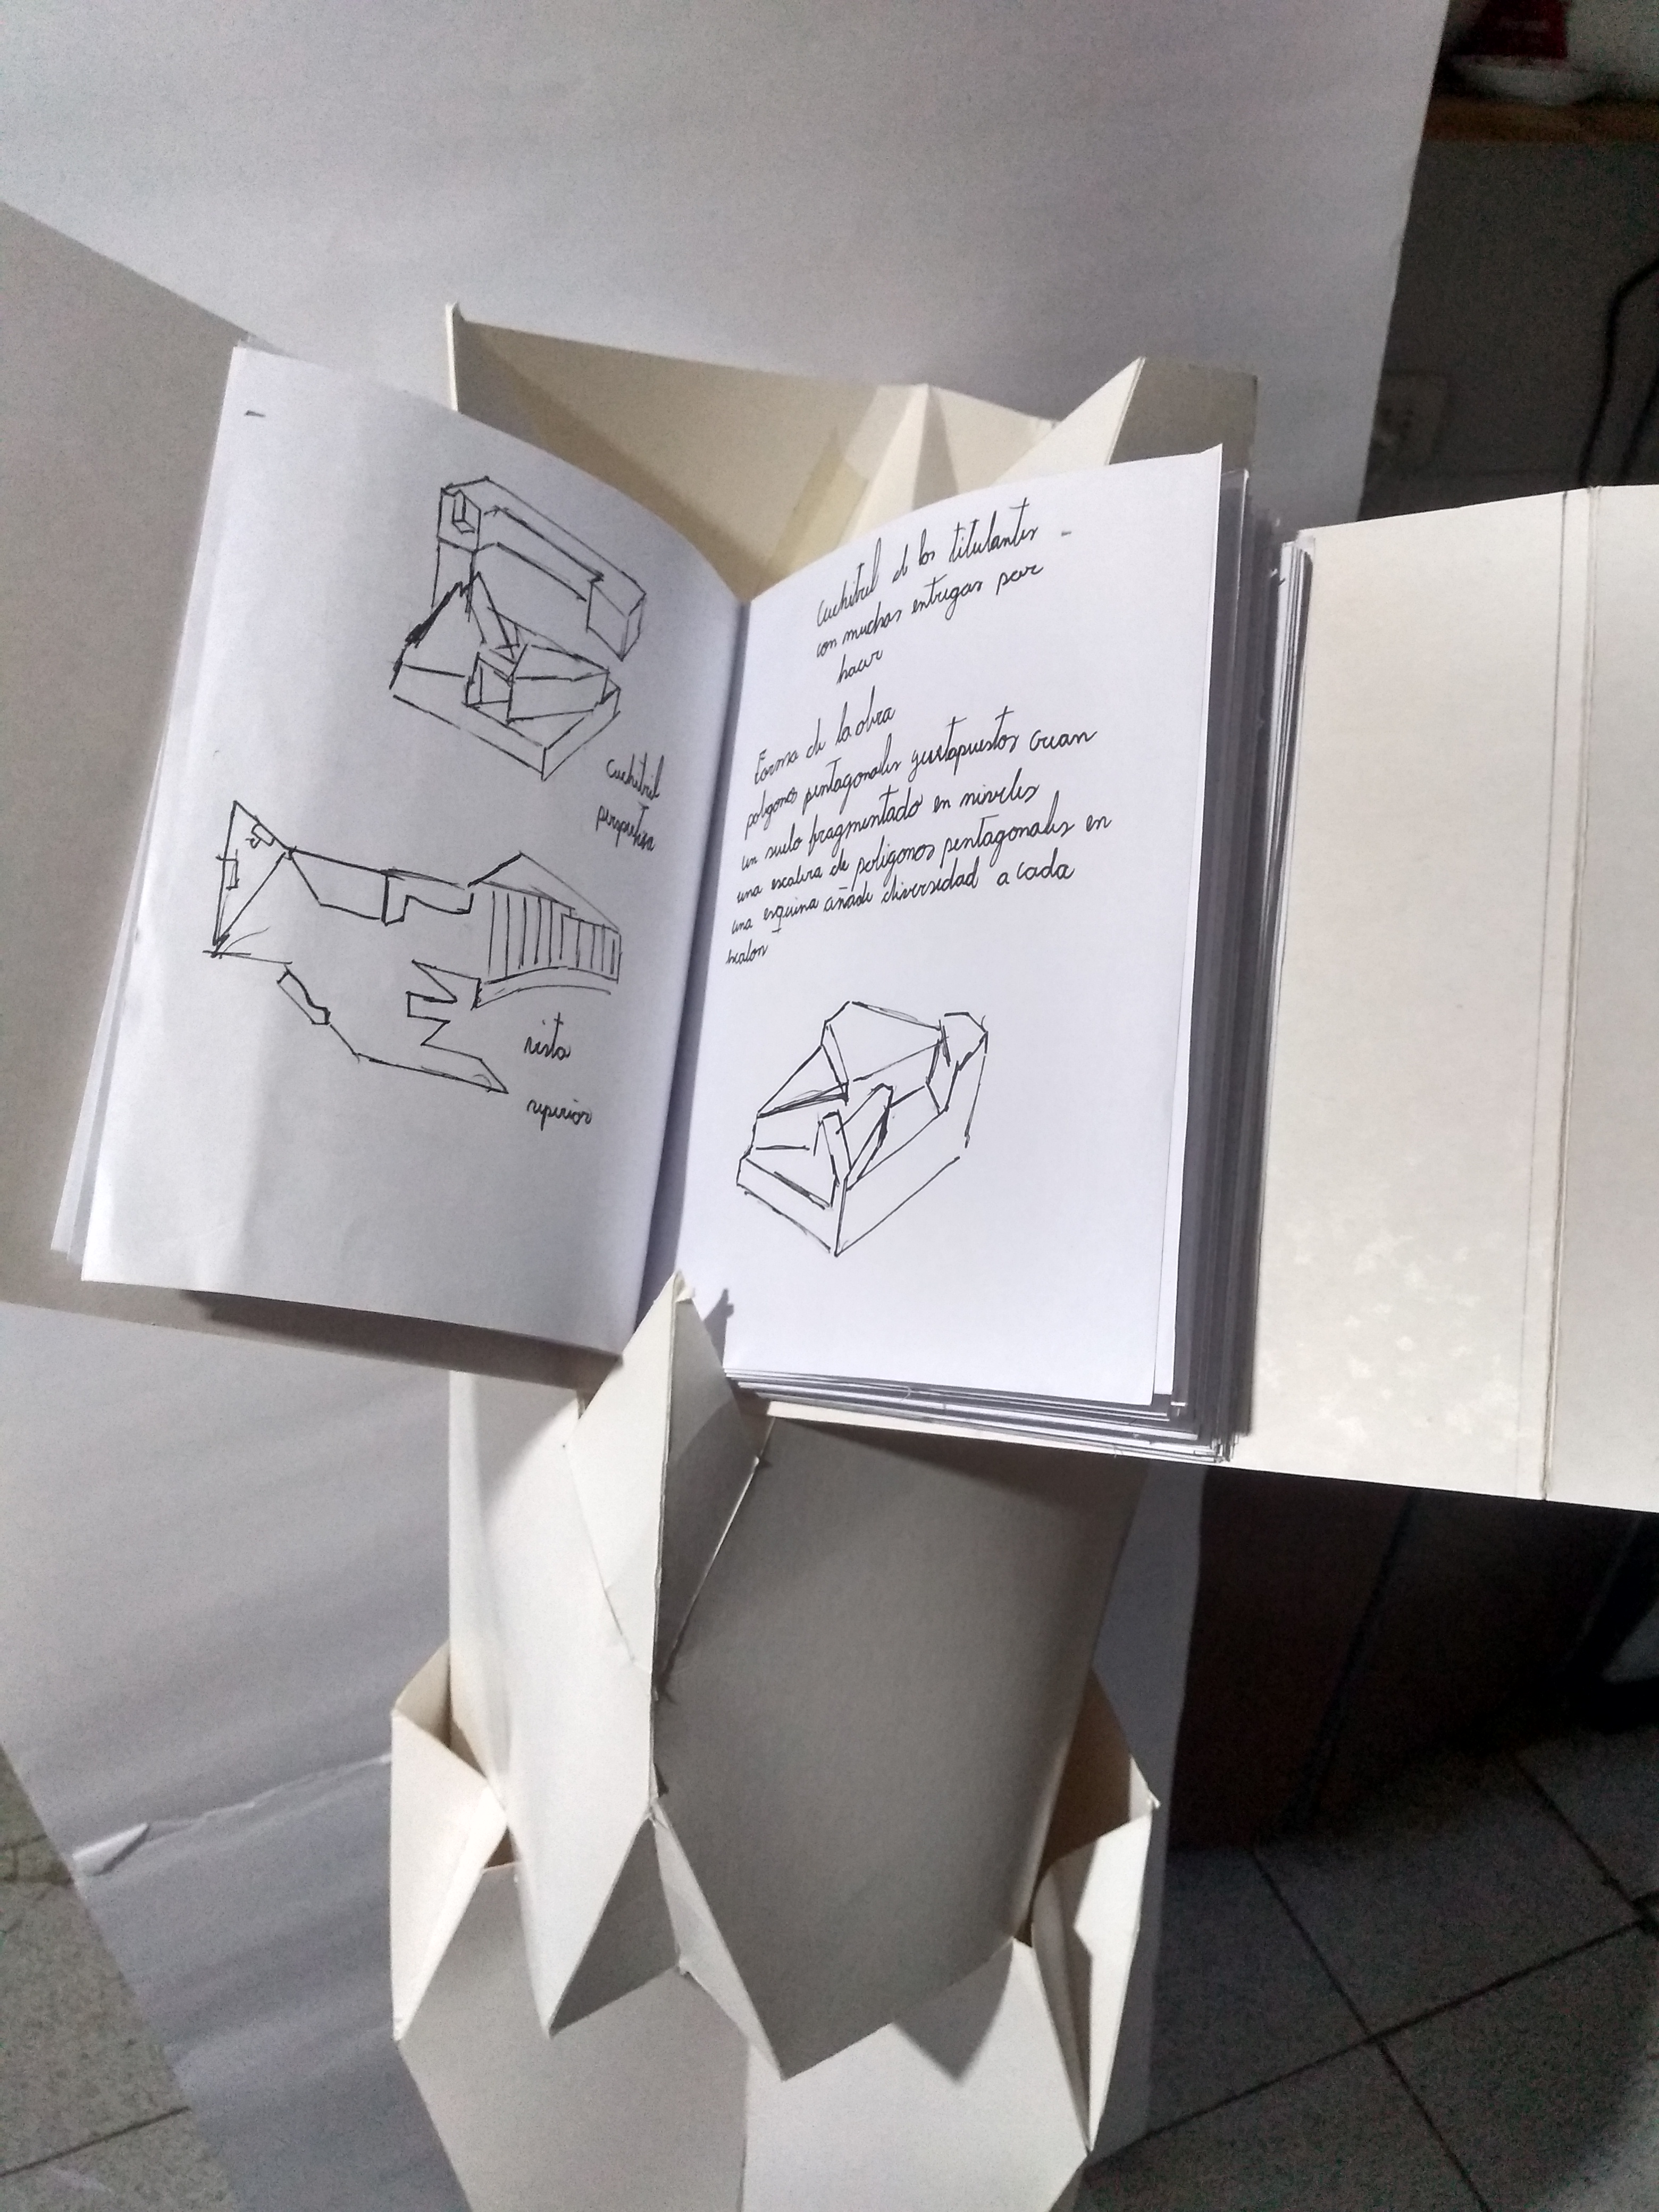 cuchitril
perspectiva
vista
superior
Cuchitril de los titulantes -
con muchas entregas por
hacer
Forma de la obra
poligonos pentagonales yuxtapuestos crean
un suelo fragmentado en niveles
una escalera de poligonos pentagonales en
una esquina añade diversidad a cada